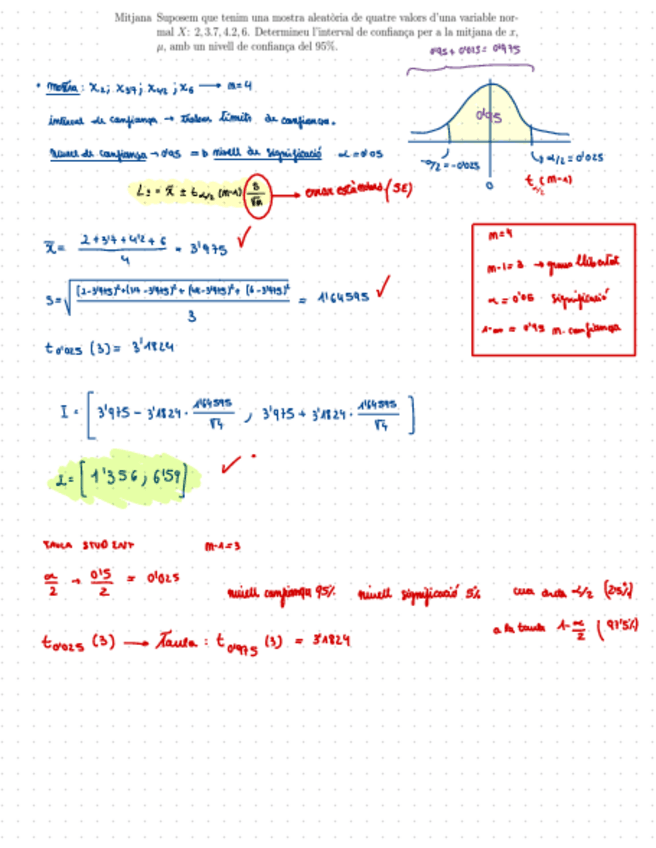 Mitjana Suposem que tenim una mostra aleatòria de quatre valors d'una variable nor-
mal X: 2, 3.7, 4.2, 6. Determineu l'interval de confiança per a la mitjana de x,
μ, amb un nivell de confiança del 95%.
0'95 + 0'025 = 0'975
• mostra: X₂; X₃'₇; X₄'₂; X₆ → n=4
interval de confiança → trobar límits de confiança.
nivell de confiança → 0'95 => nivell de significació α=0'05
0'95
-α/2 = -0'025
α/2 = 0'025
0
t α/2 (n-1)
= x̄ ± t α/2 (n-1) S/√n → error estàndard (SE)
x̄ = (2+3'7+4'2+6)/4 = 3'975 ✓
S = √(([2-3'975)²+(3'7-3'975)²+(4'2-3'975)²+(6-3'975)²)/3) = 1'64595 ✓
t 0'025 (3) = 3'1824
n=4
n-1=3 → graus llibertat
α = 0'05 significació
= 0'95 n. confiança
I = [3'975 - 3'1824 · 1'64595/√4 , 3'975 + 3'1824 · 1'64595/√4]
I = [1'356, 6'59] ✓
TAULA STUDENT n-1=3
α/2 → 0'5/2 = 0'025
nivell confiança 95% nivell significació 5% cua α/2 (2'5%)
t 0'025 (3) → Taula: t 0'975 (3) = 3'1824
a la taula 1-α/2 (97'5%)